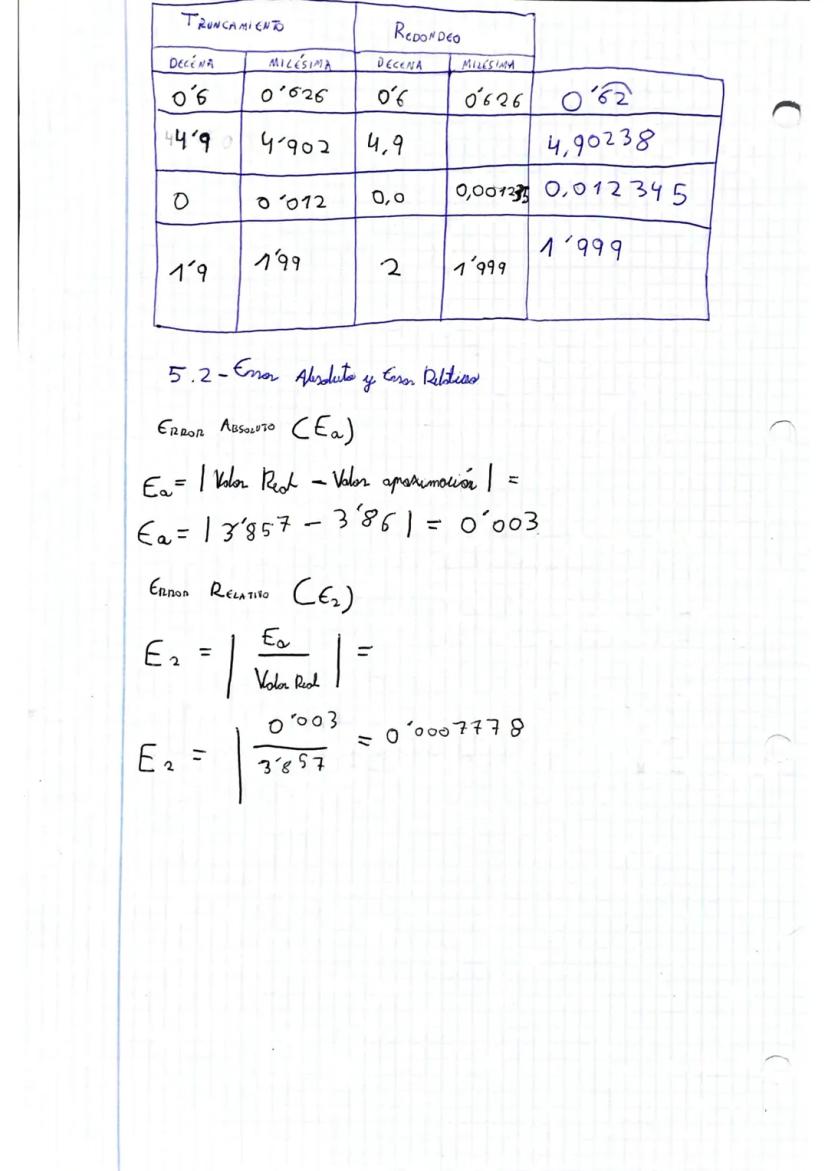 TRUNCAMIENTO REDONDEO
DECENA MILÉSIMA DECENA MILÉSIMA
0'6 0'626 0'6 0'626 0'62
4'9 4'902 4,9 4,90238
0 0'012 0,0 0,012345
1'9 1'99 2 1'999 1'999
5.2- Error Absoluto y Error Relativo
ERROR ABSOLUTO (Ea)
Ea = | Valor Real - Valor aproximación | =
Ea = | 3'857 - 3'86 | = 0'003
ERROR RELATIVO (E2)
E2 = | Ea / Valor Real | =
E2 = | 0'003 / 3'857 = 0'0007778